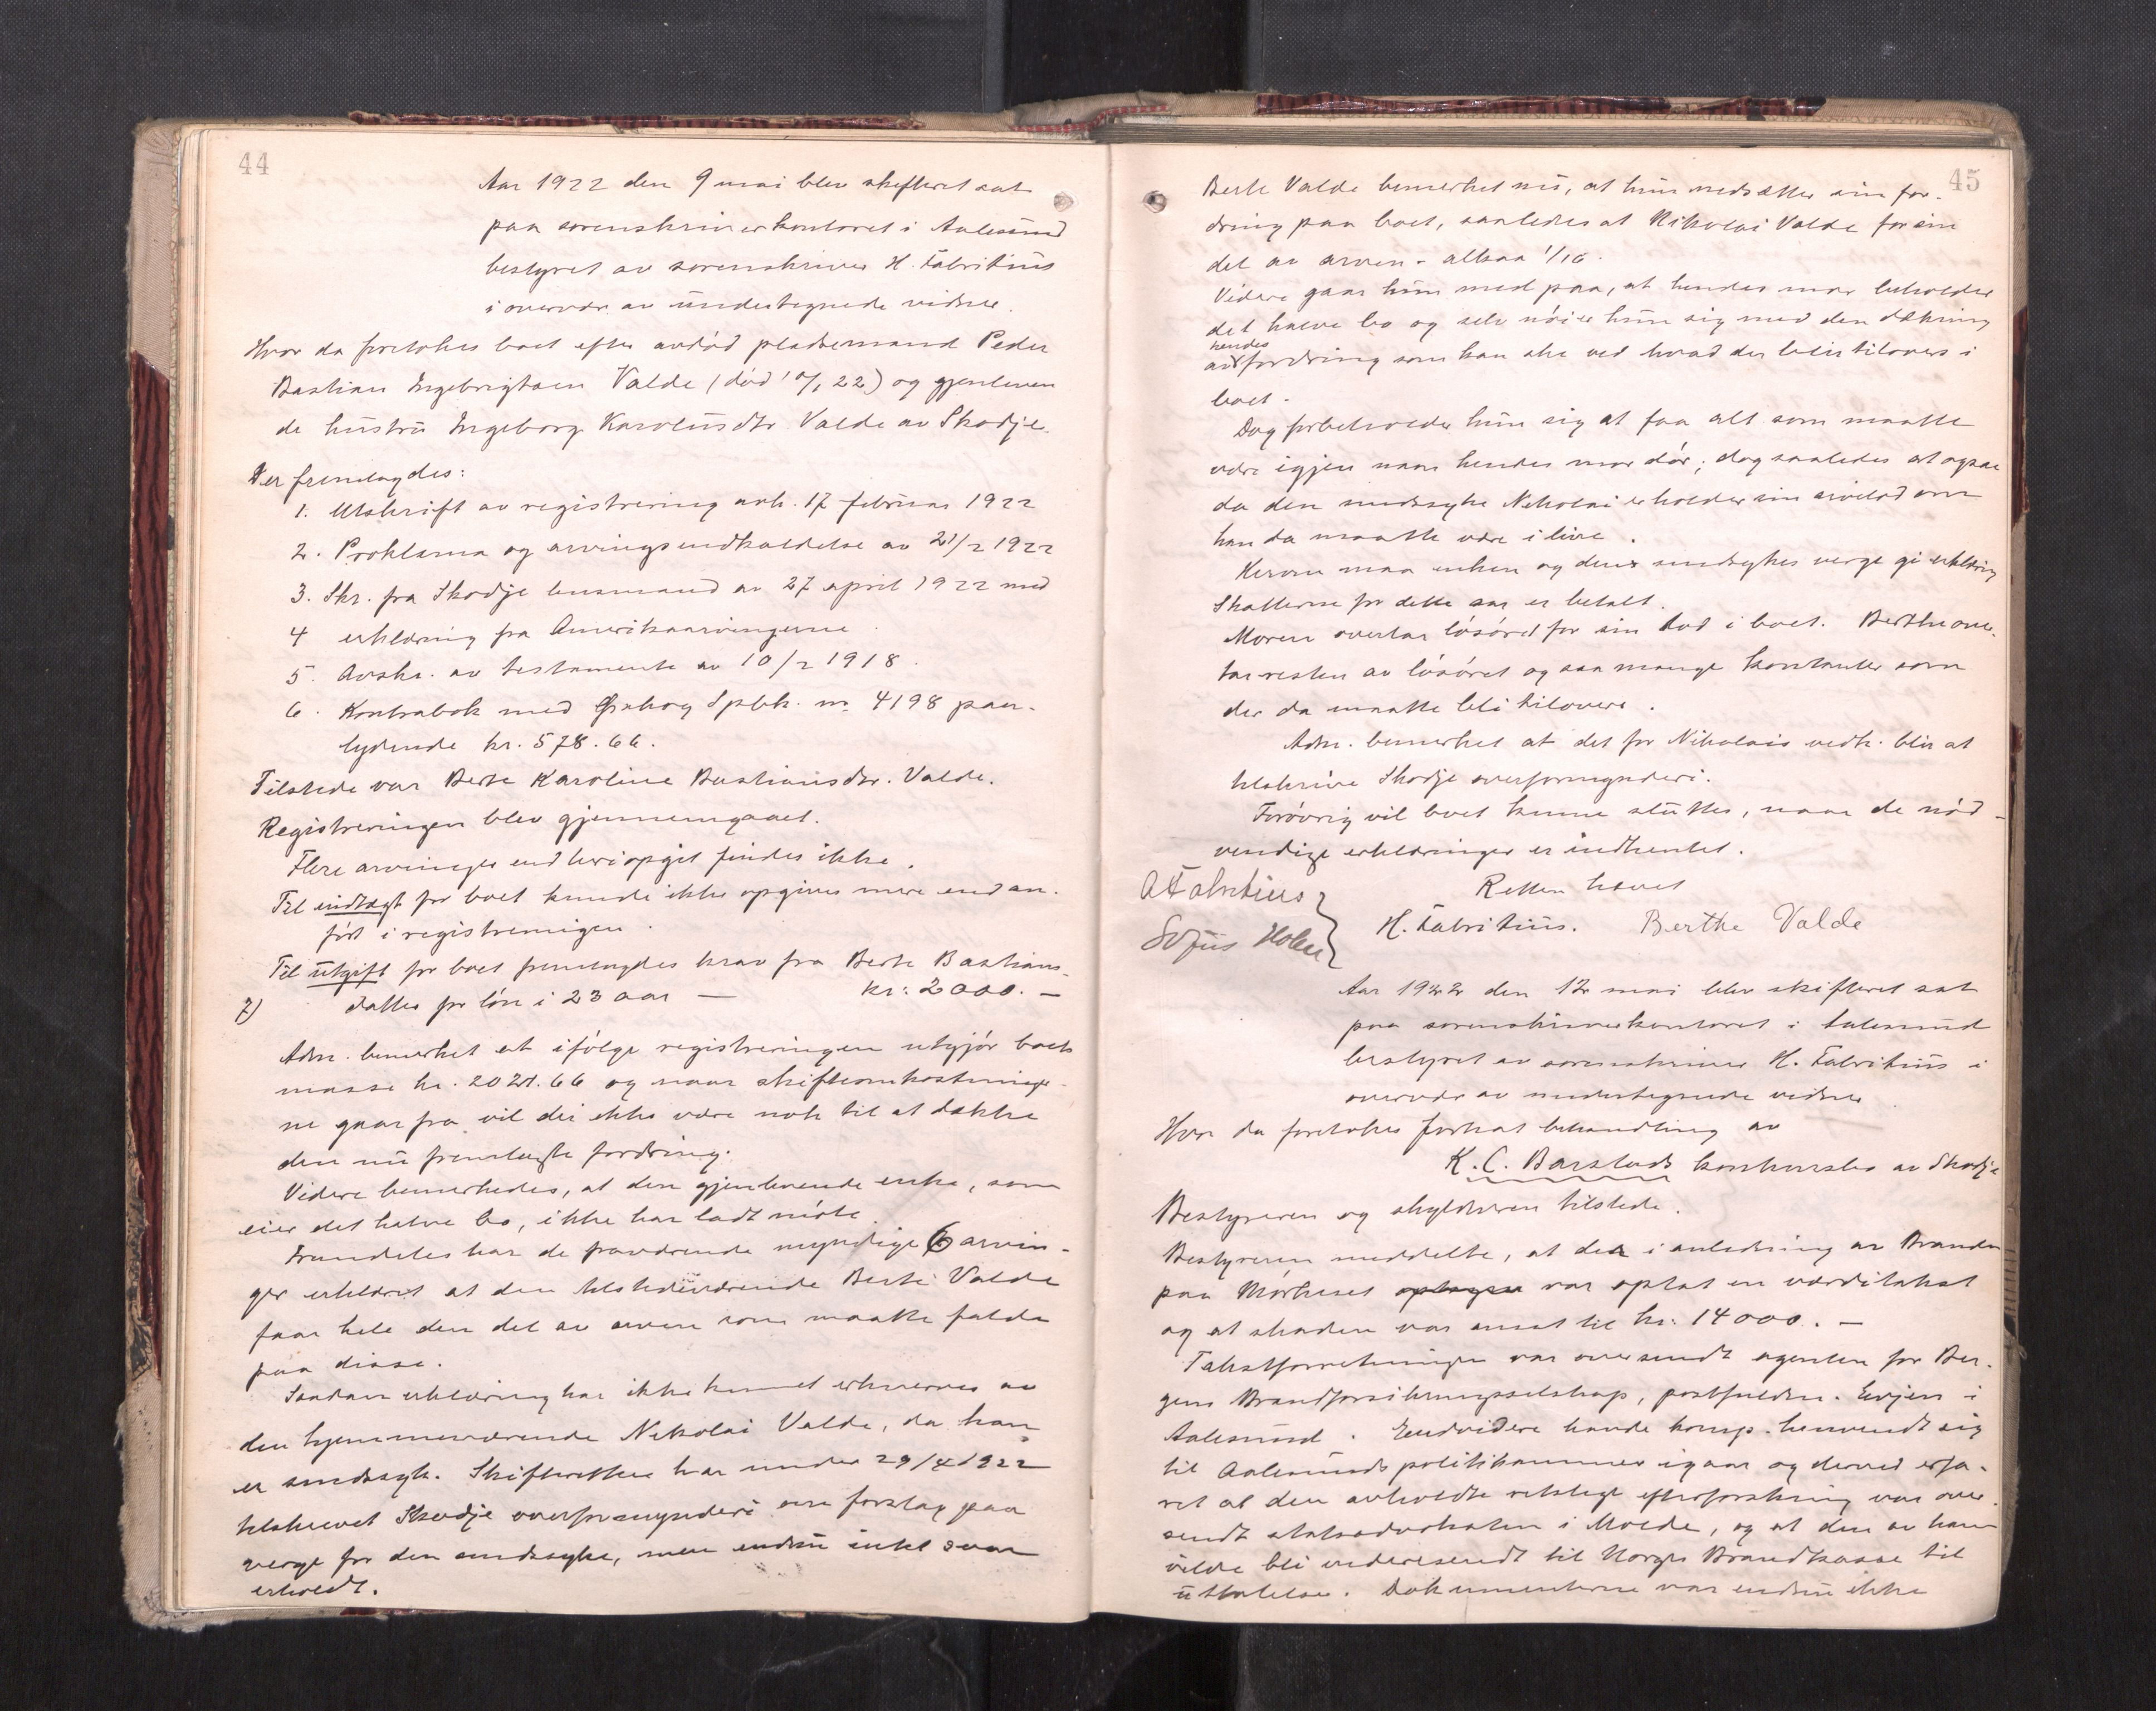 44
Aar 1922 den 9 mai blev skifteret sat
paa sorenskriverkontoret i Aalesund
bestyret av sorenskriver H. Fabritius
i overvær av undertegnede vidner.
Hvor da foretokes boet efter avdød pladsemand Peder
Bastian Ingebrigtsen Valde (død 10/1 22) og gjenleven
de hustru Ingeborg Karolusdtr. Valde av Skodje.
Der fremlagdes:
1. Utskrift av registrering avh. 17 februar 1922
2. Proklama og arvingsindkaldelse av 21/2 1922
3. Skr. fra Skodje lensmand av 27 april 1922 med
4 erklæring fra Amerikaarvingerne.
5. Avskr. av testamente av 10/2 1918.
6. Kontrabok med Spbk. nr. 4198 paa-
lydende kr. 578.66.
Tilstede var Berte Karoline Bastiansdtr. Valde.
Registreringen blev gjennemgaaet.
Flere arvinger end heri opgit findes ikke.
Til indtægt for boet kunde ikke opgives mere end an-
ført i registreringen.
Til utgift for boet fremlagdes krav fra Berte Bastians-
7) datter for løn i 23 aar — kr: 2000. —
Adm. bemerket at ifølge registreringen utgjør boets
masse kr. 2021.66 og naar skifteomkostninge-
ne gaar fra vil der ikke være nok til at dække
den nu fremlagte fordring.
Videre bemerkedes, at den gjenlevende enke, som
eier det halve bo, ikke har latt møte.
Fremdeles har de fraværende myndige 6 arvin-
ger erklæret at den tilstedeværende Berte Valde
faar hele den del av arven som maatte falde
paa disse.
Saadan erklæring har ikke kunnet erhverves av
den hjemmeværende Nikolai Valde, da han
er sindssyk. Skifteretten har under 29/4 1922
tilskrevet Skodje overformynderi om forslag paa
verge for den sindssyke, men endnu intet svar
erholdt.
45
Berte Valde bemerket nu, at hun nedsætter sin for-
dring paa boet, saaledes at Nikolai Valde faar sin
del av arven - altsaa 1/16.
Videre gaar hun med paa, at hendes mor beholder
det halve bo og selv nøier hun sig med den dækning
hendes
av fordring som kan ske ved hvad der blir tilovers i
boet.
Dog forbeholder hun sig at faa alt som maatte
være igjen naar hendes mor dør; dog saaledes at ogsaa
da den sindssyke Nikolai erholder sin arvelod om
han da maatte være i live.
Herom maa enken og den sindssykes verge gi erklæring
Skatterne for dette aar er betalt.
Moren overtar løsøret for sin lod i boet. Berthe over-
tar resten av løsøret og saa mange kontanter som
der da maatte bli tilovers.
Adm. bemerket at det for Nikolais vedk. blir at
tilskrive Skodje overformynderi.
Forøvrig vil boet kunne sluttes, naar de nød-
vendige erklæringer er indhentet.
Retten hævet
A Fabritius
Sofus Holen
H. Fabritius. Berthe Valde
Aar 1922 den 12 mai blev skifteret sat
paa sorenskriverkontoret i Aalesund
bestyret av sorenskriver H. Fabritius i
overvær av undertegnede vidner
Hvor da foretokes fortsat behandling av
K. C. Barstads konkursbo av Skodje
Bestyreren og skyldneren tilstede.
Bestyreren meddelte, at der i anledning av Branden
paa Mørkeset optagen var optat en værditakst
og at skaden var ansat til kr: 14000. —
Takstforretningen var oversendt agenten for Ber-
gens Brandforsikringsselskap, postfuldm. Evjen i
Aalesund. Endvidere havde komp. henvendt sig
til Aalesunds politikammer igaar og derved erfa-
ret at den avholdte retslige efterforskning var over-
sendt statsadvokaten i Molde, og at den av ham
vilde bli videresendt til Norges Brandkasse til
uttalelse. Dokumenterne var endnu ikke